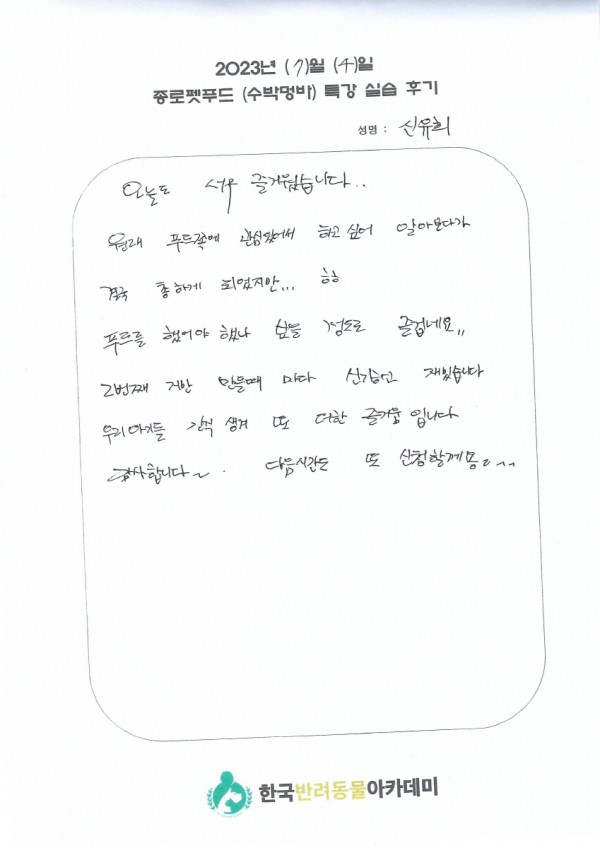 2023년 (7)월 (4)일
종로펫푸드 (수박멍바) 특강 실습 후기
성명 : 신유희
오늘도 너무 즐거웠습니다..
원래 푸드쪽에 관심있어서 하고 싶어 알아보다가
결국 총하게 되었지만... ㅎㅎ
푸드를 했어야 했나 싶을 정도로 즐겁네요,,
2번째 지만 만들때 마다 신기하고 재밌습니다
우리 아가들 간식 생겨 또 더한 즐거움 입니다
감사합니다~. 다음시간도 또 신청할께용~~
한국반려동물아카데미